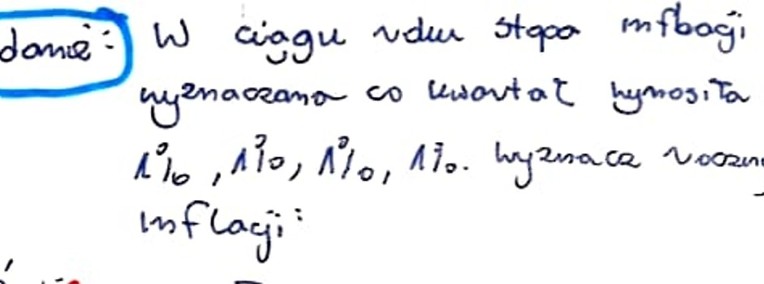 danie: W ciągu roku stopa inflacji
wyznaczana co kwartał wynosiła
1%, 1%, 1%, 1%. Wyznacz roczn
inflacji: